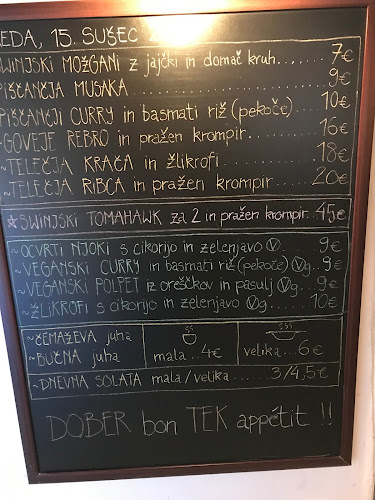 EDA, 15. SUŠEC
SWINJSKI MOŽGANI z jajčki in domač kruh...... 7€
PIŠČANČJA MUSAKA 9€
PIŠČANČJI CURRY in basmati riž (pekoče) 10€
~GOVEJE REBRO in pražen krompir..... 16€
~TELEČJA KRAČA in žlikrofi........ 18€
~TELEČJA RIBCA in pražen krompir...... 20€
★SWINJSKI TOMAHAWK za 2 in pražen krompir. 45€
~OCVRTI NJOKI s cikorijo in zelenjavo Ⓥ.... 9€
~VEGANSKI CURRY in basmati riž (pekoče) Vg.. 9€
~VEGANSKI POLPET iz oreškov in pasulj Vg.. 9€
~ŽLIKROFI s cikorijo in zelenjavo Vg.... 10€
~ČEMAŽEVA juha
~BUČNA juha mala...4€ velika...6€
~DNEVNA SOLATA mala/velika....... 3/4,5€
DOBER bon TEK appétit !!